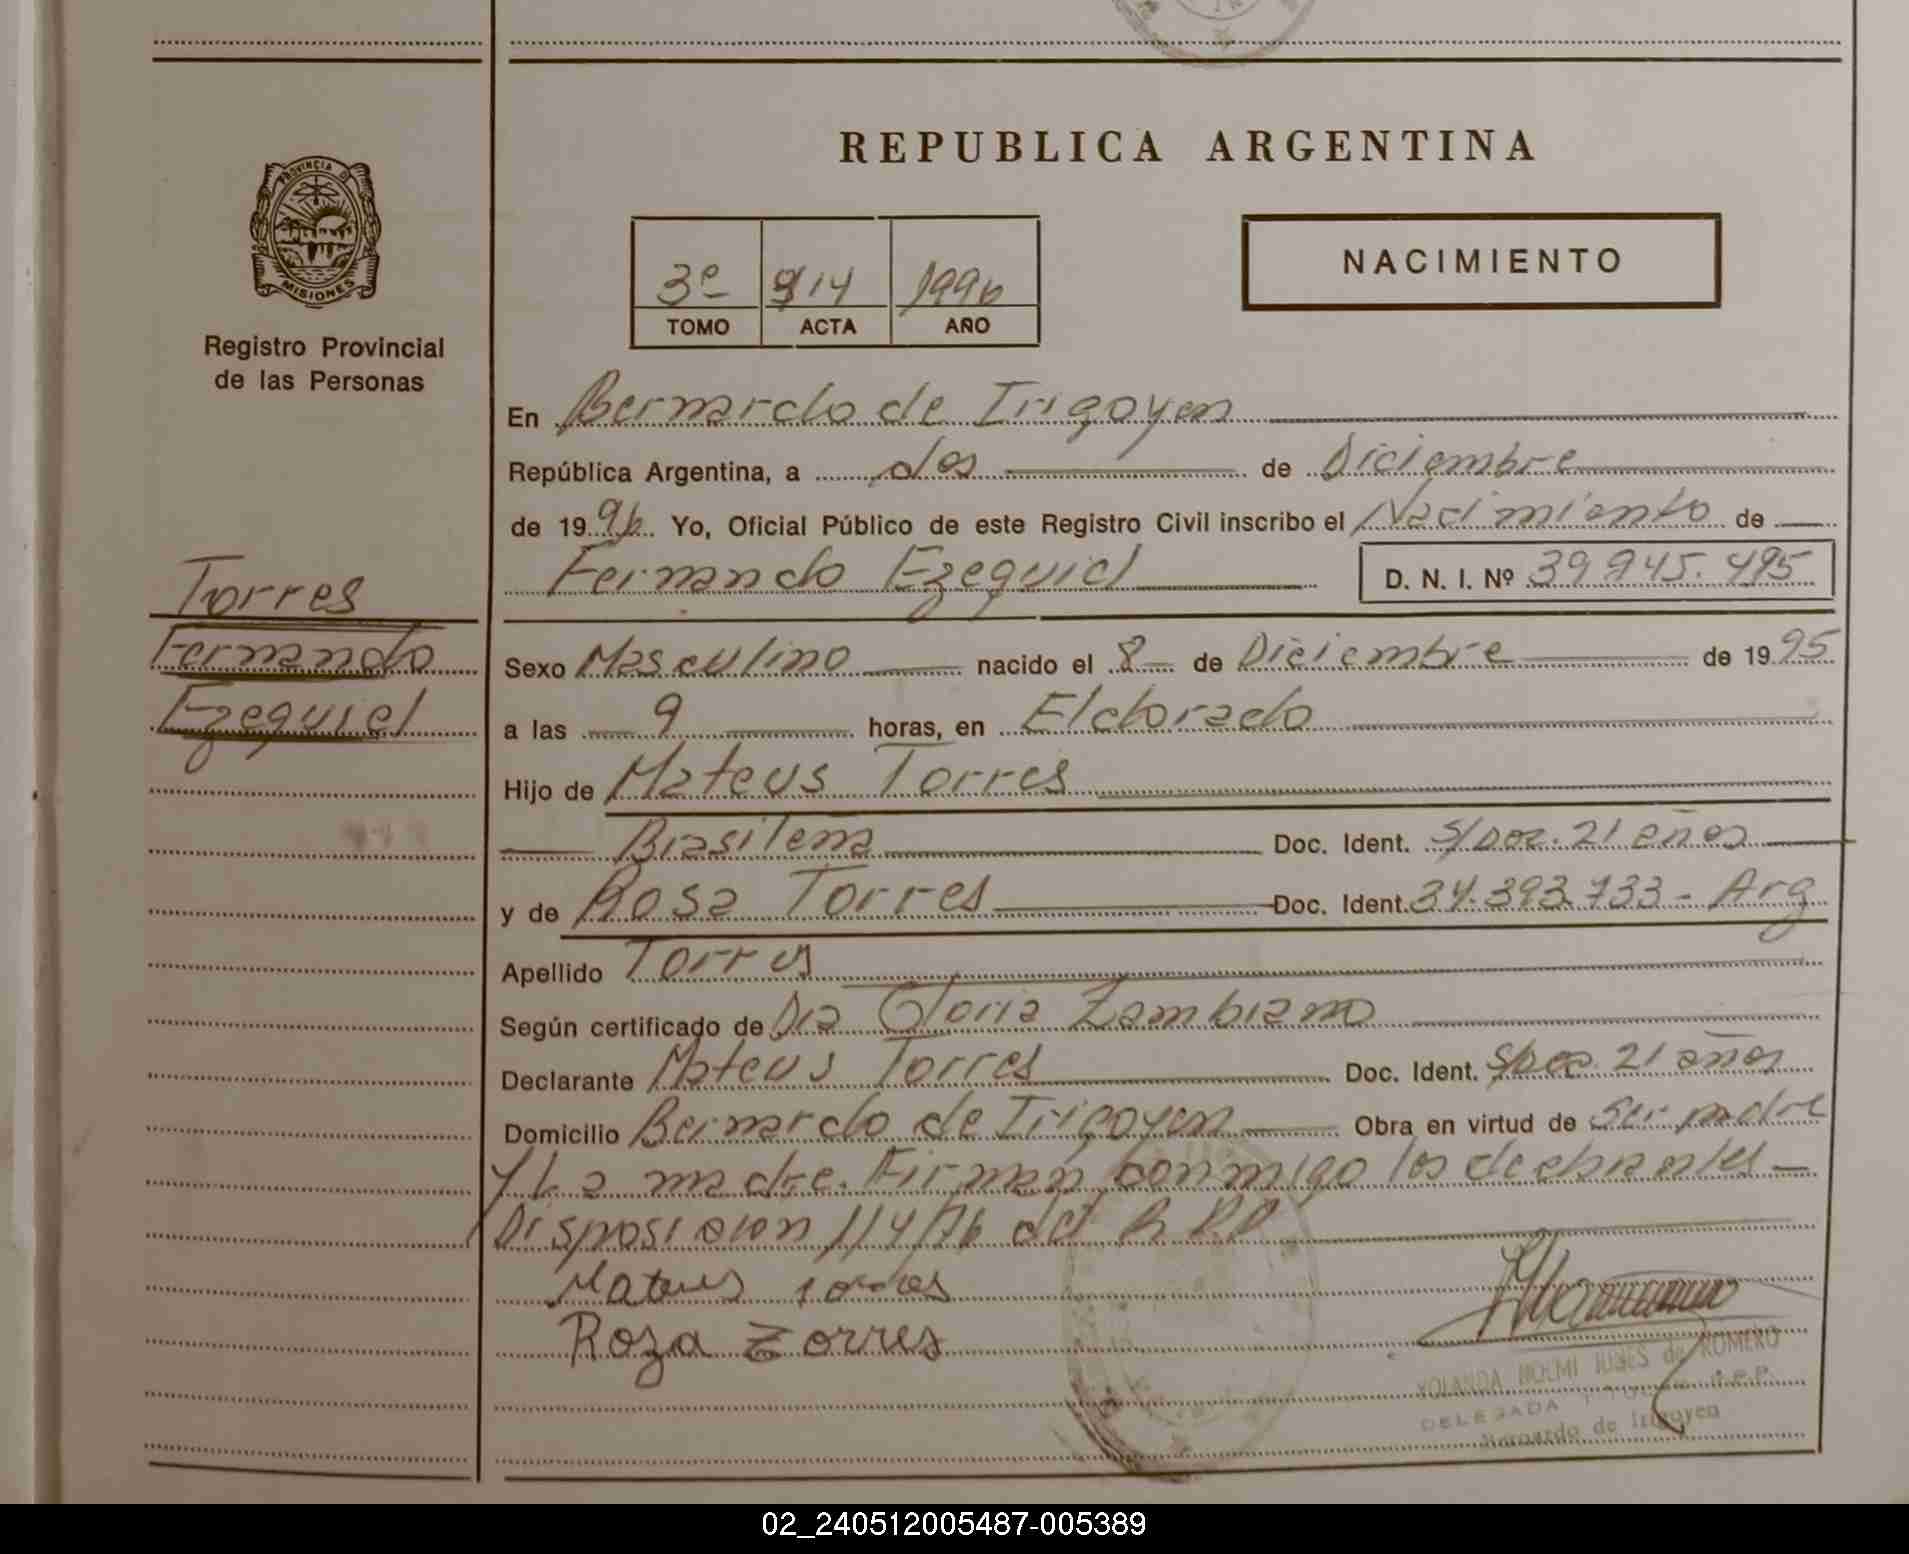 REPUBLICA ARGENTINA
PROVINCIA DE
MISIONES
Registro Provincial
de las Personas
NACIMIENTO
3º 914 1996
TOMO ACTA AÑO
En Bernardo de Irigoyen
República Argentina, a dos de Diciembre
de 1996. Yo, Oficial Público de este Registro Civil inscribo el Nacimiento de
Fernando Ezequiel D. N. I. Nº 39.945.495
Torres
Fernando
Ezequiel
Sexo Masculino nacido el 8 de Diciembre de 1995
a las 9 horas, en Eldorado
Hijo de Mateus Torres
Brasileña Doc. Ident. S/Doc. 21 años
y de Rosa Torres Doc. Ident. 34.393.733 - Arg
Apellido Torres
Según certificado de Dra Gloria Zambrano
Declarante Mateus Torres Doc. Ident. S/Doc. 21 años
Domicilio Bernardo de Irigoyen Obra en virtud de ser padre
y La madre. Firman conmigo los declarantes
Disposicion 114/96 del R.P.P
Mateus Torres
Roza Torres
YOLANDA NOEMI de ROMERO
DELEGADA R.P.P.
Bernardo de Irigoyen
02_240512005487-005389